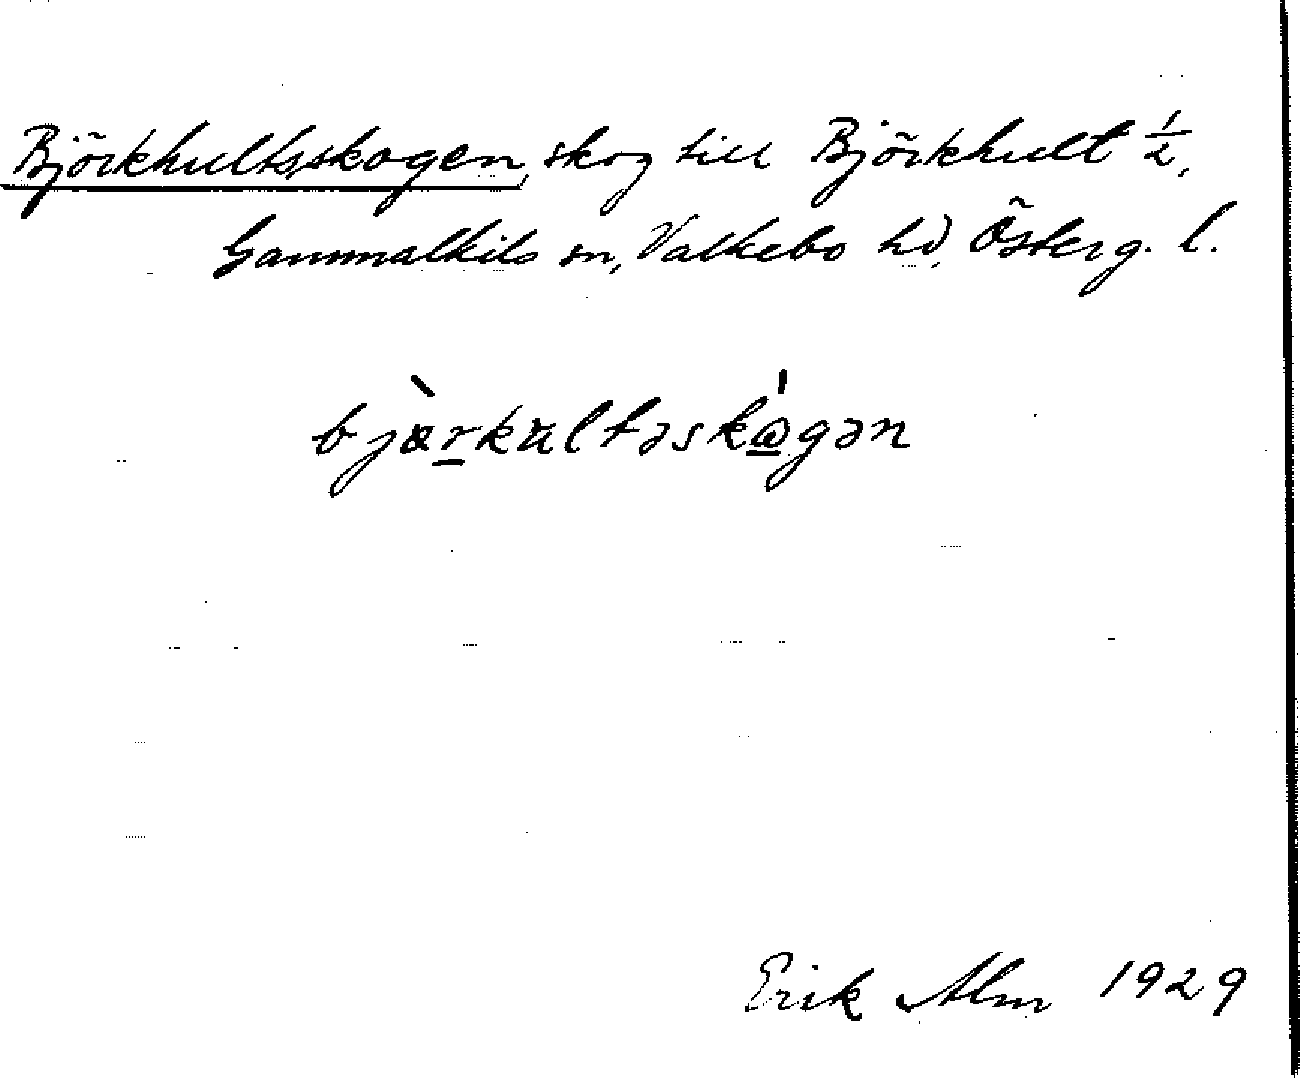 Björkhultsskogen, skog till Björkhult 1/2,
Gammalkils sn, Valkebo hd, Österg. l.
bjæ̀rkultəskɷ́gən
Erik Alm 1929